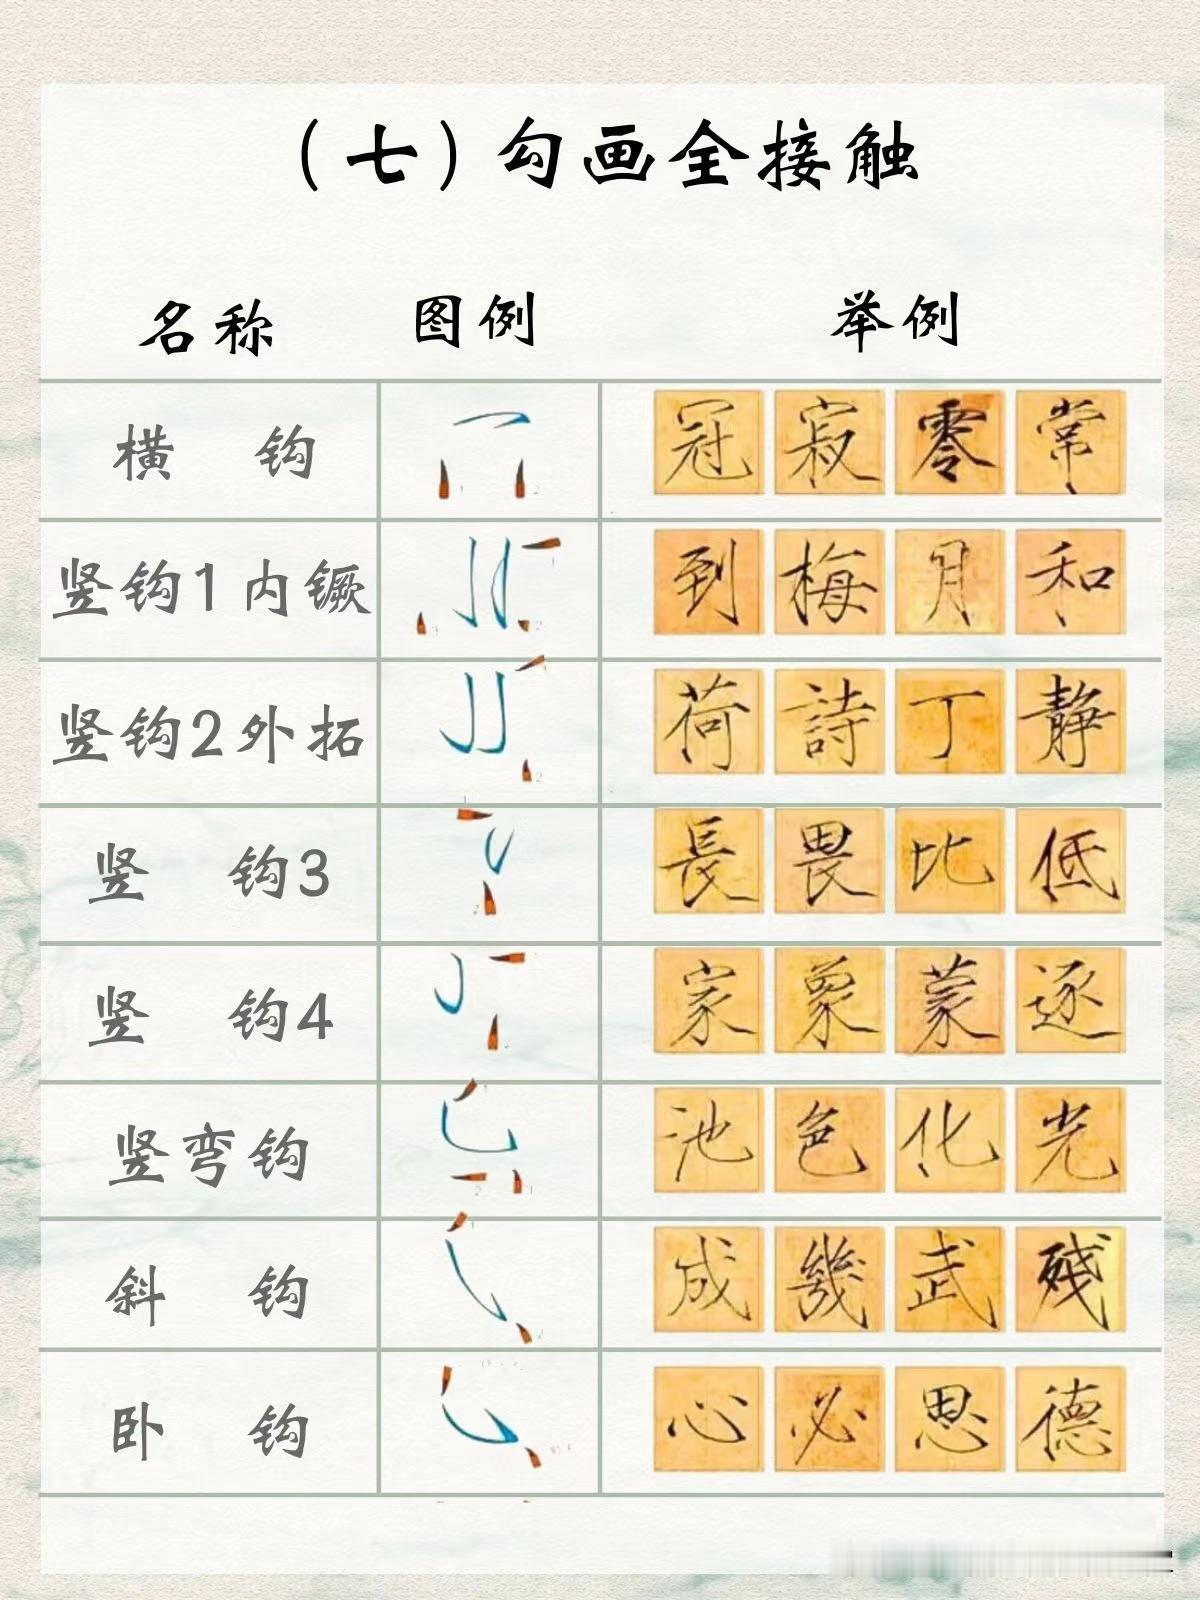 （七）勾画全接触
名称 图例 举例
横钩 冠 寂 零 常
竖钩1内镢 到 梅 月 和
竖钩2外拓 荷 詩 丁 静
竖钩3 長 畏 比 低
竖钩4 家 象 蒙 逐
竖弯钩 池 色 化 光
斜钩 成 幾 武 残
卧钩 心 必 思 德